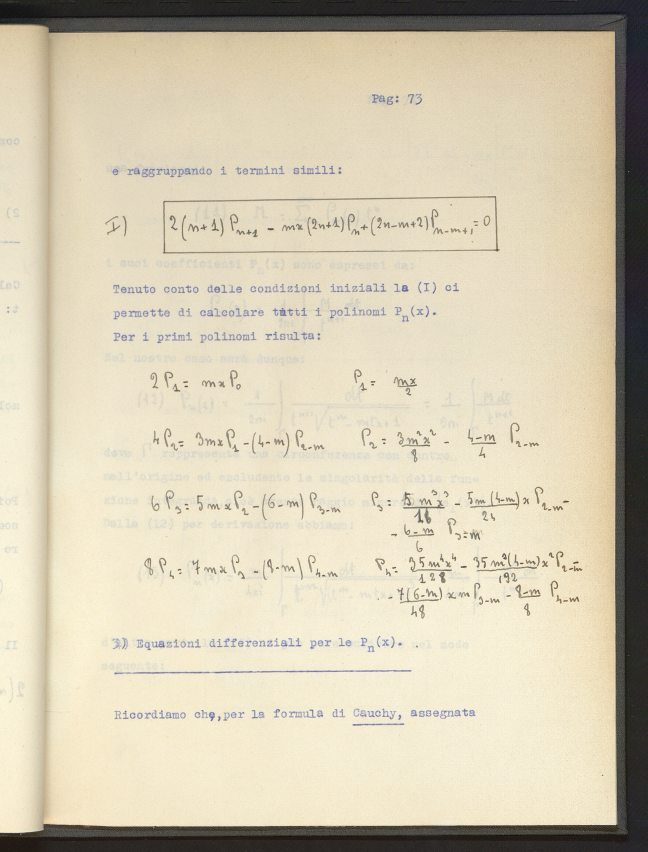 Pag: 73
e raggruppando i termini simili:
I) 2(n+1) P_{n+1} - mx(2n+1)P_n + (2n-m+2)P_{n-m+1} = 0
Tenuto conto delle condizioni iniziali la (I) ci
permette di calcolare tutti i polinomi P_n(x).
Per i primi polinomi risulta:
2P_1 = mxP_0 P_1 = mx/2
4P_2 = 3mxP_1 - (4-m)P_{2-m} P_2 = 3m²x²/8 - 4-m/4 P_{2-m}
6P_3 = 5mxP_2 - (6-m)P_{3-m} P_3 = 15m³x³/16 - 5m(4-m)/24 x P_{2-m} -
- 6-m/6 P_{3-m}
8P_4 = 7mxP_3 - (8-m)P_{4-m} P_4 = 35m⁴x⁴/128 - 35m²(4-m)/192 x²P_{2-m} -
7(6-m)/48 xmP_{3-m} - 8-m/8 P_{4-m}
3) Equazioni differenziali per le P_n(x).
Ricordiamo che, per la formula di Cauchy, assegnata